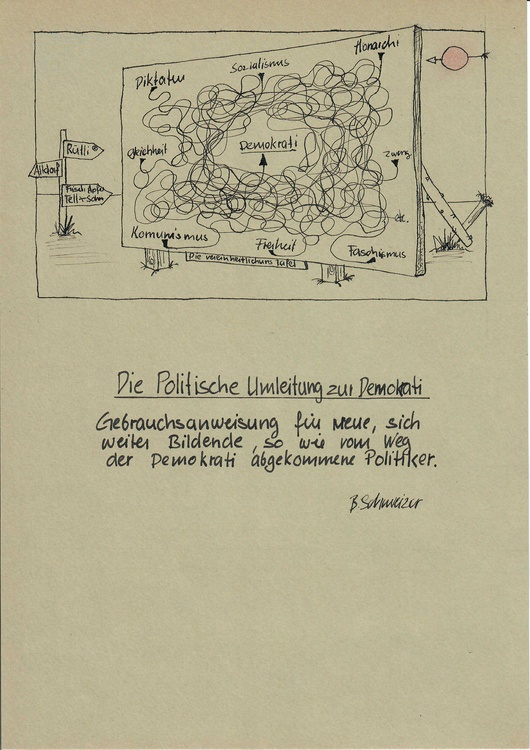 Sozialismus
Monarchi
Diktatur
Rütli
gleichheit
Demokrati
Zwang
Altdorf
Tell + Sohn
etc.
Komunismus
Freiheit
Faschismus
Die vereinheitlichungs Tafel
Die Politische Umleitung zur Demokrati
Gebrauchsanweisung für Neue, sich
weiter Bildende, so wie vom Weg
der Demokrati abgekommene Politiker.
B. Schweizer